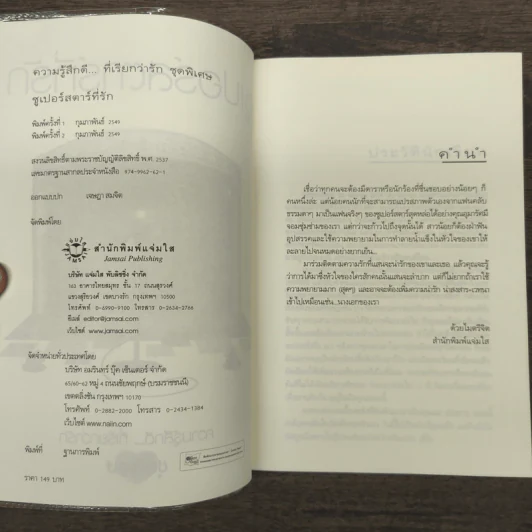 ความรู้สึกดี... ที่เรียกว่ารัก ชุดพิเศษ
ซูเปอร์สตาร์ที่รัก
พิมพ์ครั้งที่ 1 กุมภาพันธ์ 2549
พิมพ์ครั้งที่ 2 กุมภาพันธ์ 2549
สงวนลิขสิทธิ์ตามพระราชบัญญัติลิขสิทธิ์ พ.ศ. 2537
เลขมาตรฐานสากลประจำหนังสือ 974-9962-62-1
ออกแบบปก เจษฎา สมจิต
จัดพิมพ์โดย
สำนักพิมพ์แจ่มใส
Jamsai Publishing
บริษัท แจ่มใส พับลิชชิ่ง จำกัด
163 อาคารไทยสมุทร ชั้น 17 ถนนสุรวงศ์
แขวงสุริยวงศ์ เขตบางรัก กรุงเทพฯ 10500
โทรศัพท์ 0-6990-9100 โทรสาร 0-2634-2766
อีเมล์ editor@jamsai.com
เว็บไซต์ www.jamsai.com
จัดจำหน่ายทั่วประเทศโดย
บริษัท อมรินทร์ บุ๊ค เซ็นเตอร์ จำกัด
65/60-62 หมู่ 4 ถนนชัยพฤกษ์ (บรมราชชนนี)
เขตตลิ่งชัน กรุงเทพฯ 10170
โทรศัพท์ 0-2882-2000 โทรสาร 0-2434-1384
เว็บไซต์ www.naiin.com
พิมพ์ที่ ฐานการพิมพ์
ราคา 149 บาท
คำนำ
เชื่อว่าทุกคนจะต้องมีดาราหรือนักร้องที่ชื่นชอบอย่างน้อยๆ ก็
คนหนึ่งล่ะ แต่น้อยคนนักที่จะสามารถแปรสภาพตัวเองจากแฟนคลับ
ธรรมดาๆ มาเป็นแฟนจริงๆ ของซูเปอร์สตาร์สุดหล่อได้อย่างคุณอุมารัศมี
จอมซุ่มซ่ามของเรา แต่กว่าจะก้าวไปถึงจุดนั้นได้ สาวน้อยก็ต้องฝ่าฟัน
อุปสรรคและใช้ความพยายามในการทำลายน้ำแข็งในหัวใจของเขาให้
ละลายไปจนหมดอย่างยากเย็น...
มาร่วมติดตามความรักที่แสนจะน่ารักของเขาและเธอ แล้วคุณจะรู้
ว่าการได้มาซึ่งหัวใจของใครสักคนนั้นแสนจะลำบาก แต่ก็ไม่ยากถ้าเราใช้
ความพยายามมาก (สุดๆ) และอาจจะต้องเพิ่มความน่ารัก น่าสงสาร
เข้าไปเหมือนเช่น...นางเอกของเรา
ด้วยไมตรีจิต
สำนักพิมพ์แจ่มใส